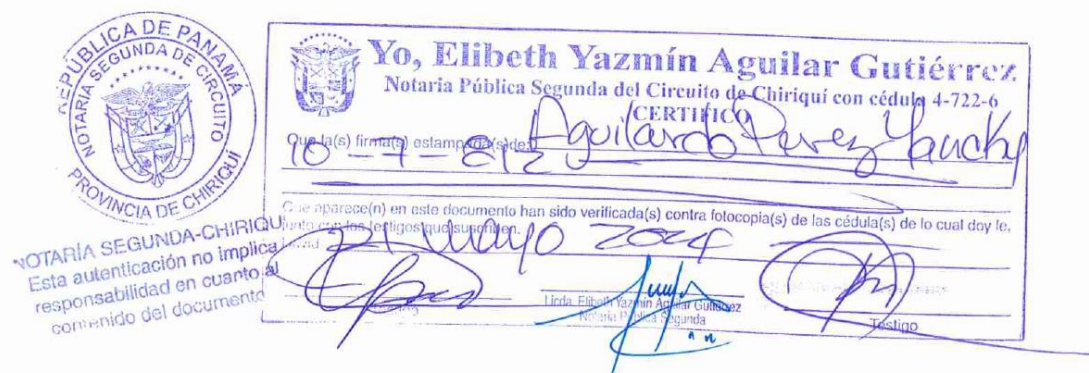 REPÚBLICA DE PANAMÁ
NOTARIA SEGUNDA DE CIRCUITO
PROVINCIA DE CHIRIQUÍ
NOTARÍA SEGUNDA-CHIRIQUI
Esta autenticación no implica
responsabilidad en cuanto al
contenido del documento
Yo, Elibeth Yazmín Aguilar Gutiérrez
Notaria Pública Segunda del Circuito de Chiriquí con cédula 4-722-6
CERTIFICO
Que la(s) firma(s) estampada(s) de: Aguilardo Perez Yancky
10-7-812
Que aparece(n) en este documento han sido verificada(s) contra fotocopia(s) de las cédula(s) de lo cual doy fe,
junto con los testigos que suscriben.
21 mayo 2024
Licda. Elibeth Yazmín Aguilar Gutiérrez
Notaria Pública Segunda
Testigo